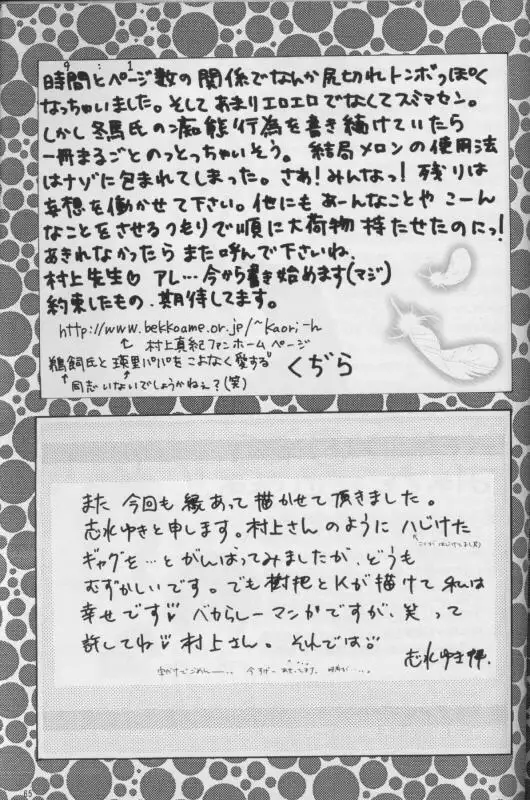 時間とページ数の関係でなんか尻切れトンボっぽく
なっちゃいました。そしてあまりエロエロでなくてスミマセン。
しかし冬馬氏の痴態行為を書き続けていたら
一冊まるごとのっとっちゃいそう。結局メロンの使用法
はナゾに包まれてしまった。さあ!みんなっ!残りは
妄想を働かせて下さい。他にもあーんなことや こーん
なことをさせるつもりで順に大荷物 持たせたのにっ!
あきれなかったら また呼んで下さいね。
村上先生♡ アレ…今から書き始めます(マジ)
約束したもの、期待してます。
http://www.bekkoame.or.jp/~kaori-h
村上真紀ファンホームページ
鵜飼氏と瑛里パパをこよなく愛する くぢら
同志いないでしょうかねぇ?(笑)
また 今回も縁あって描かせて頂きました。
志水ゆきと申します。村上さんのように ハじけた
ギャグを…とがんばってみましたが、どうも
むずかしいです。でも樹把とKが描けて 私は
幸せです♡ バカらしーマンガですが、笑って
許してね♡ 村上さん。それでは
志水ゆき拝.
65